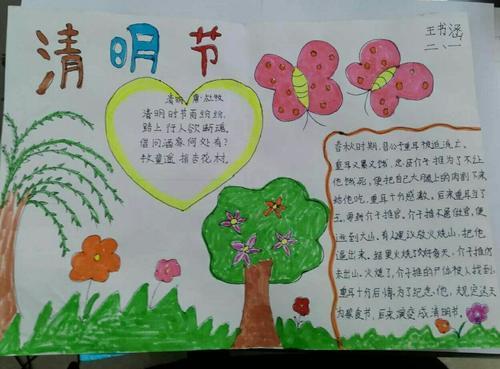 清明节
王书涵
二、一
清明 唐·杜牧
清明时节雨纷纷,
路上行人欲断魂。
借问酒家何处有?
牧童遥指杏花村。
春秋时期,晋公子重耳被迫流亡。
重耳又累又饿,忠臣介子推为了不让
他饿死,便把自己大腿上的肉割下来
给他吃,重耳十分感激。后来重耳当了
王,要封介子推官。介子推不愿做官,便
逃到大山。有人建议放火烧山,把他
逼出来。结果火烧了好几天,介子推仍
未出山。火熄了,介子推的尸体被人找到,
重耳十分后悔,为了纪念他,规定这天
为寒食节,后来演变成清明节。